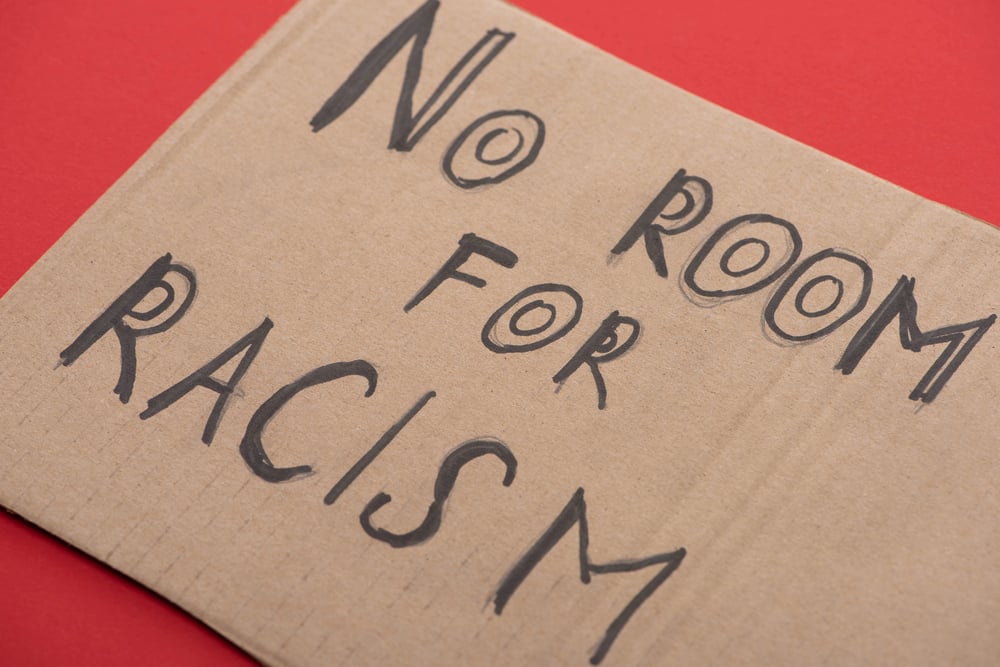 NO ROOM
FOR
RACISM